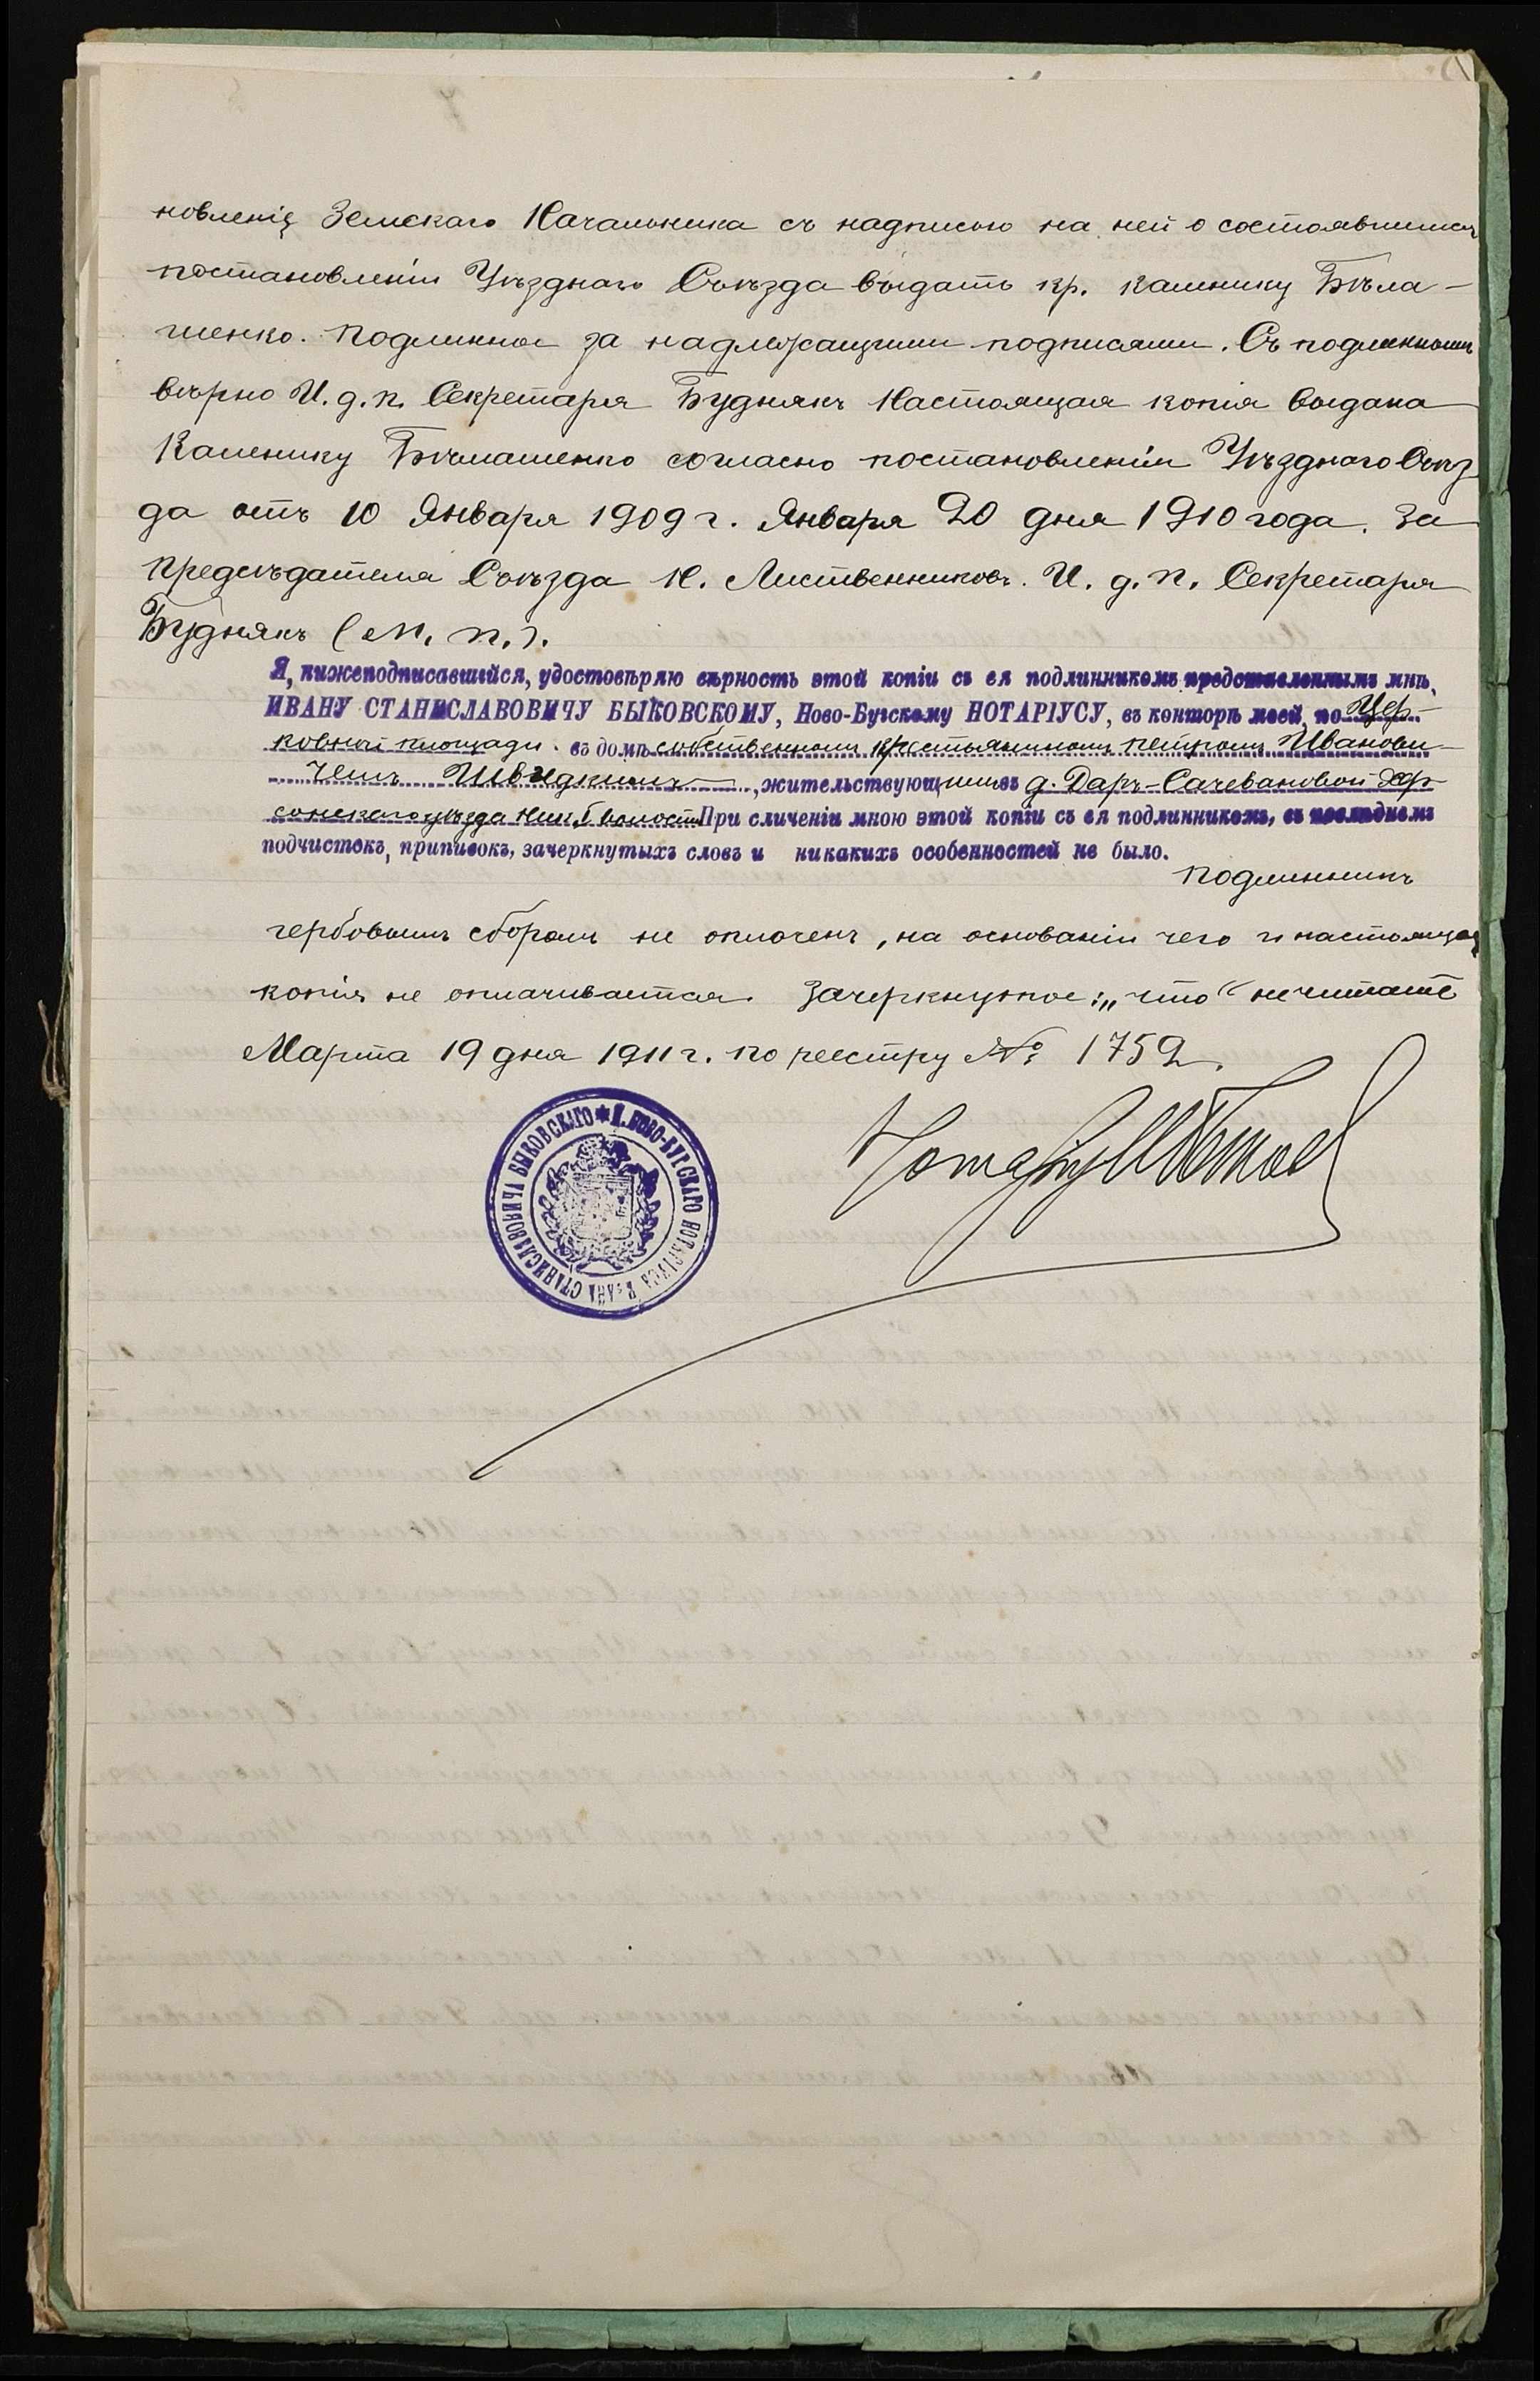 новленія Земскаго Начальника съ надписью на ней о состоявшимся
постановленіи Уѣзднаго Съѣзда выдать кр. Каленику Бѣла-
шенко. Подлинное за надлежащими подписями. Съ подлиннымъ
вѣрно И. д. п. Секретаря Буднякъ Настоящая копія выдана
Каленику Бѣлашенко согласно постановленіи Уѣзднаго Съѣз
да отъ 10 Января 1909 г. Января 20 дня 1910 года. За
предсѣдателя Съѣзда Н. Лиственниковъ. И. д. п. Секретаря
Буднякъ (М. П.).
Я, нижеподписавшійся, удостовѣряю вѣрность этой копіи съ ея подлинникомъ представленнымъ мнѣ,
ИВАНУ СТАНИСЛАВОВИЧУ БЫКОВСКОМУ, Ново-Бугскому НОТАРІУСУ, въ конторѣ моей, по Цер-
ковной площади въ домѣ собственномъ крестьяниномъ Петромъ Иванови-
чемъ Швидкимъ, жительствующимъ въ д. Даръ-Сачевановой Хер-
сонскаго уѣзда волости При сличеніи мною этой копіи съ ея подлинникомъ, въ послѣднемъ
подчистокъ, приписокъ, зачеркнутыхъ словъ и никакихъ особенностей не было.
Подлинникъ
гербовымъ сборомъ не оплоченъ, на основаніи чего и настоящая
копія не оплачивается. Зачеркнутое: „что“ не читать
Марта 19 дня 1911 г. по реестру № 1752.
Нотаріус
* П. НОВО-БУГСКАГО НОТАРІУСА ИВАНА СТАНИСЛАВОВИЧА БЫКОВСКАГО